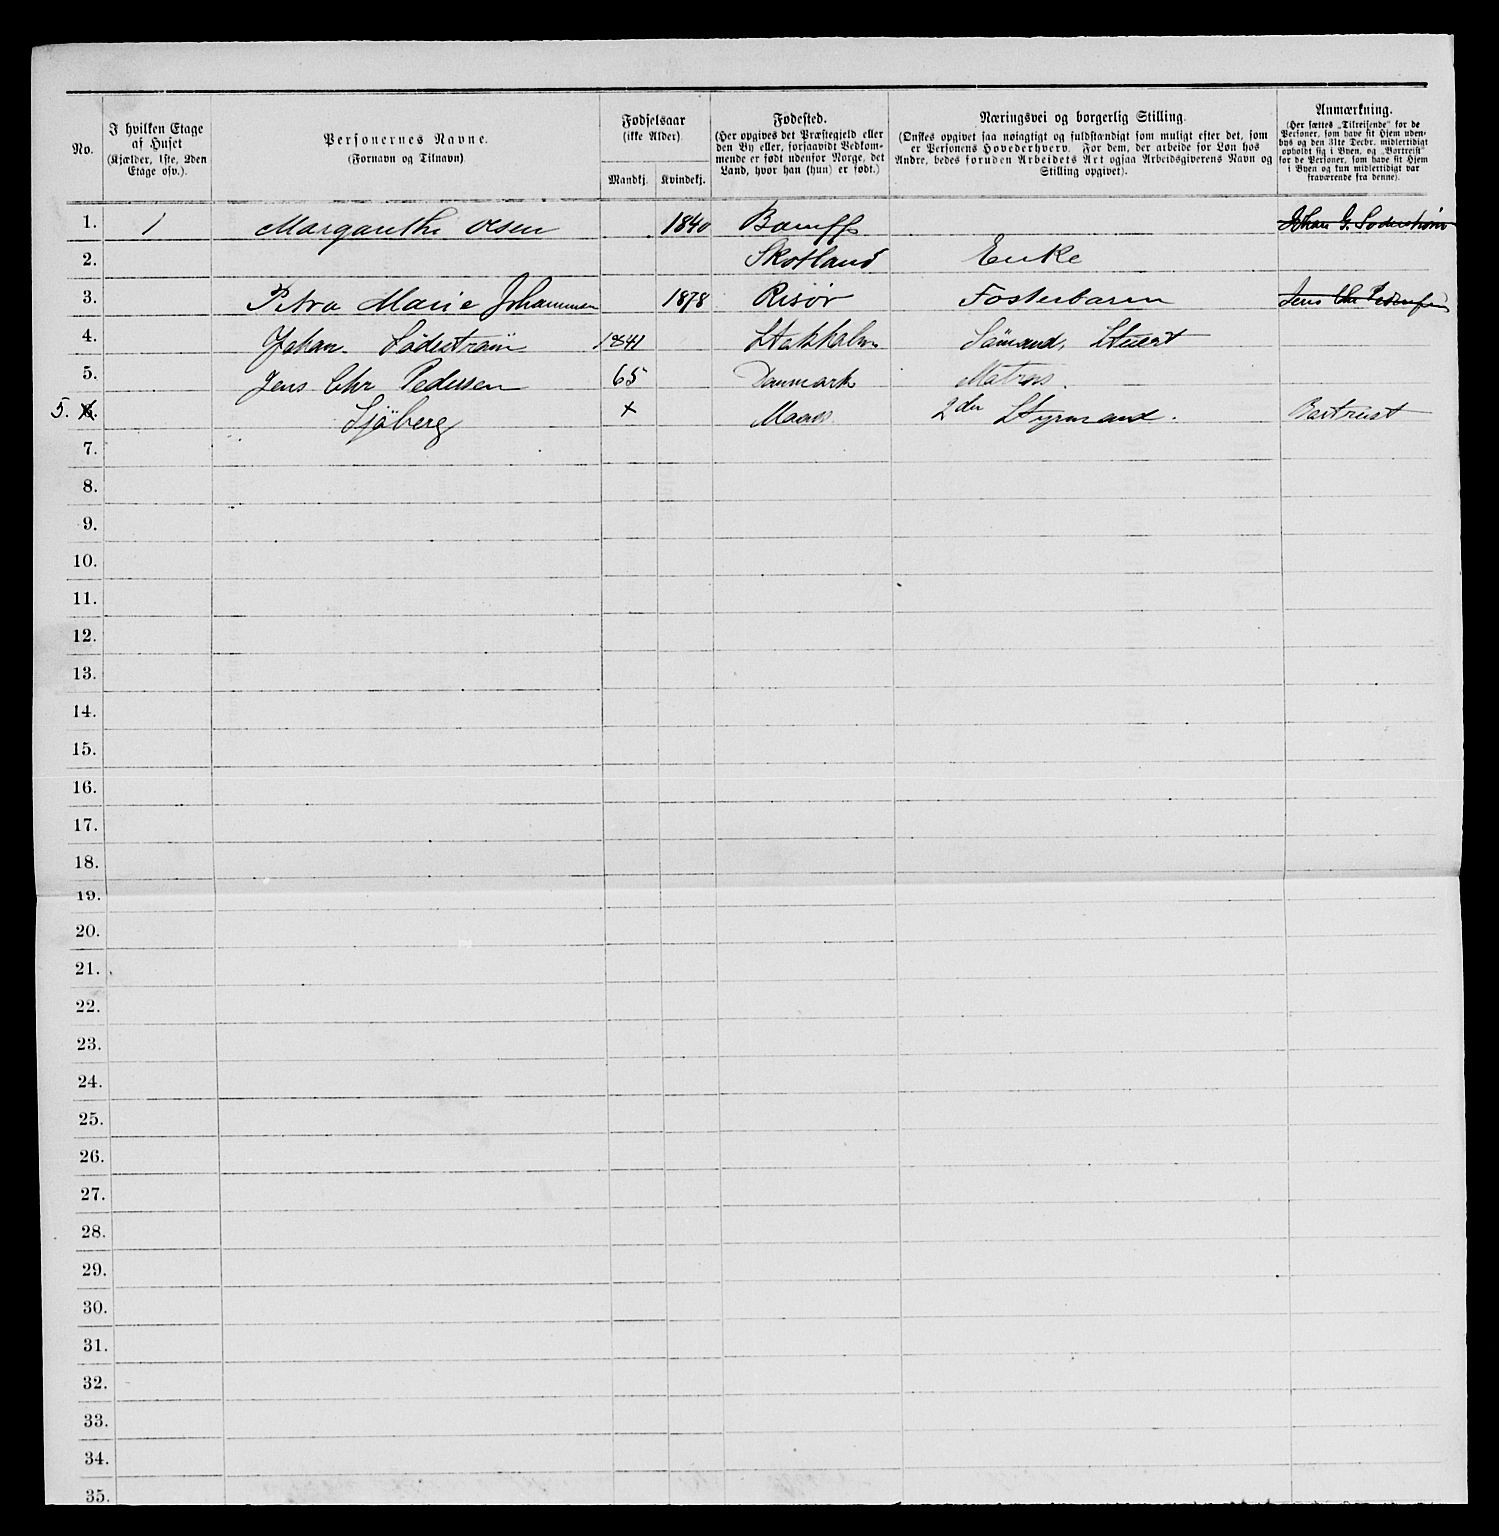 No.
I hvilken Etage
af Huset
(Kjælder, 1ste, 2den
Etage osv.).
Personernes Navne.
(Fornavn og Tilnavn)
Fødselsaar
(ikke Alder).
Mandkj. Kvindekj.
Fødested.
(Her opgives det Præstegjeld eller
den By eller, forsaavidt Vedkom-
mende er født udenfor Norge, det
Land, hvor han (hun) er født.)
Næringsvei og borgerlig Stilling.
(Ønskes opgivet saa nøiagtigt og fuldstændigt som muligt efter det, som
er Personens Hovederhverv. For dem, der arbeide for Løn hos
Andre, bedes foruden Arbeidets Art ogsaa Arbeidsgiverens Navn og
Stilling opgivet).
Anmærkning.
(Her sættes „Tilreisende" for de
Personer, som have sit Hjem uden-
bys og den 31te Decbr. midlertidigt
opholdt sig i Byen, og „Bortreist"
for de Personer, som have sit Hjem
i Byen og kun midlertidigt var
fraværende fra denne).
1. 1 Margarethe Olsen 1840 Bamff Johan G. Soderstrøm
2. Skotland Enke
3. Petra Marie Johannesen 1878 Risør Fosterbarn Jens Chr Pedersen
4. Johan Söderström 1841 Stokholm Sömand, Stuert
5. Jens Chr Pedersen 65 Danmark Matros.
5. 6. Sjöberg × 2den Styrmand. Bortreist
7.
8.
9.
10.
11.
12.
13.
14.
15.
16.
17.
18.
19.
20.
21.
22.
23.
24.
25.
26.
27.
28.
29.
30.
31.
32.
33.
34.
35.